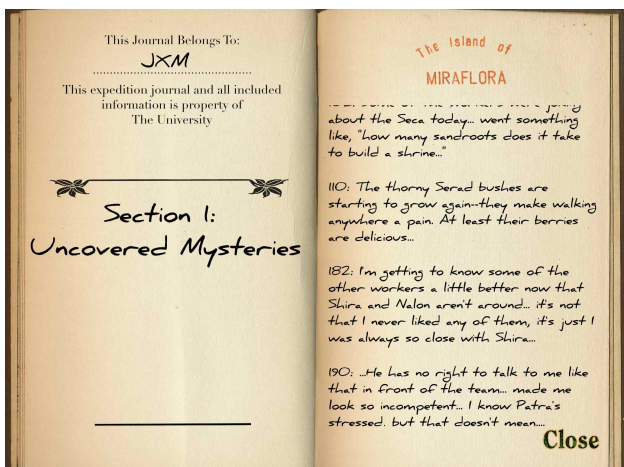 This Journal Belongs To:
JXM
This expedition journal and all included
information is property of
The University
Section 1:
Uncovered Mysteries
The Island of
MIRAFLORA
about the Seca today... went something
like, "how many sandroots does it take
to build a shrine..."
110: The thorny Serad bushes are
starting to grow again--they make walking
anywhere a pain. At least their berries
are delicious...
182: I'm getting to know some of the
other workers a little better now that
Shira and Nalon aren't around... it's not
that I never liked any of them, it's just I
was always so close with Shira...
190: ...He has no right to talk to me like
that in front of the team... made me
look so incompetent... I know Patra's
stressed. but that doesn't mean....
Close